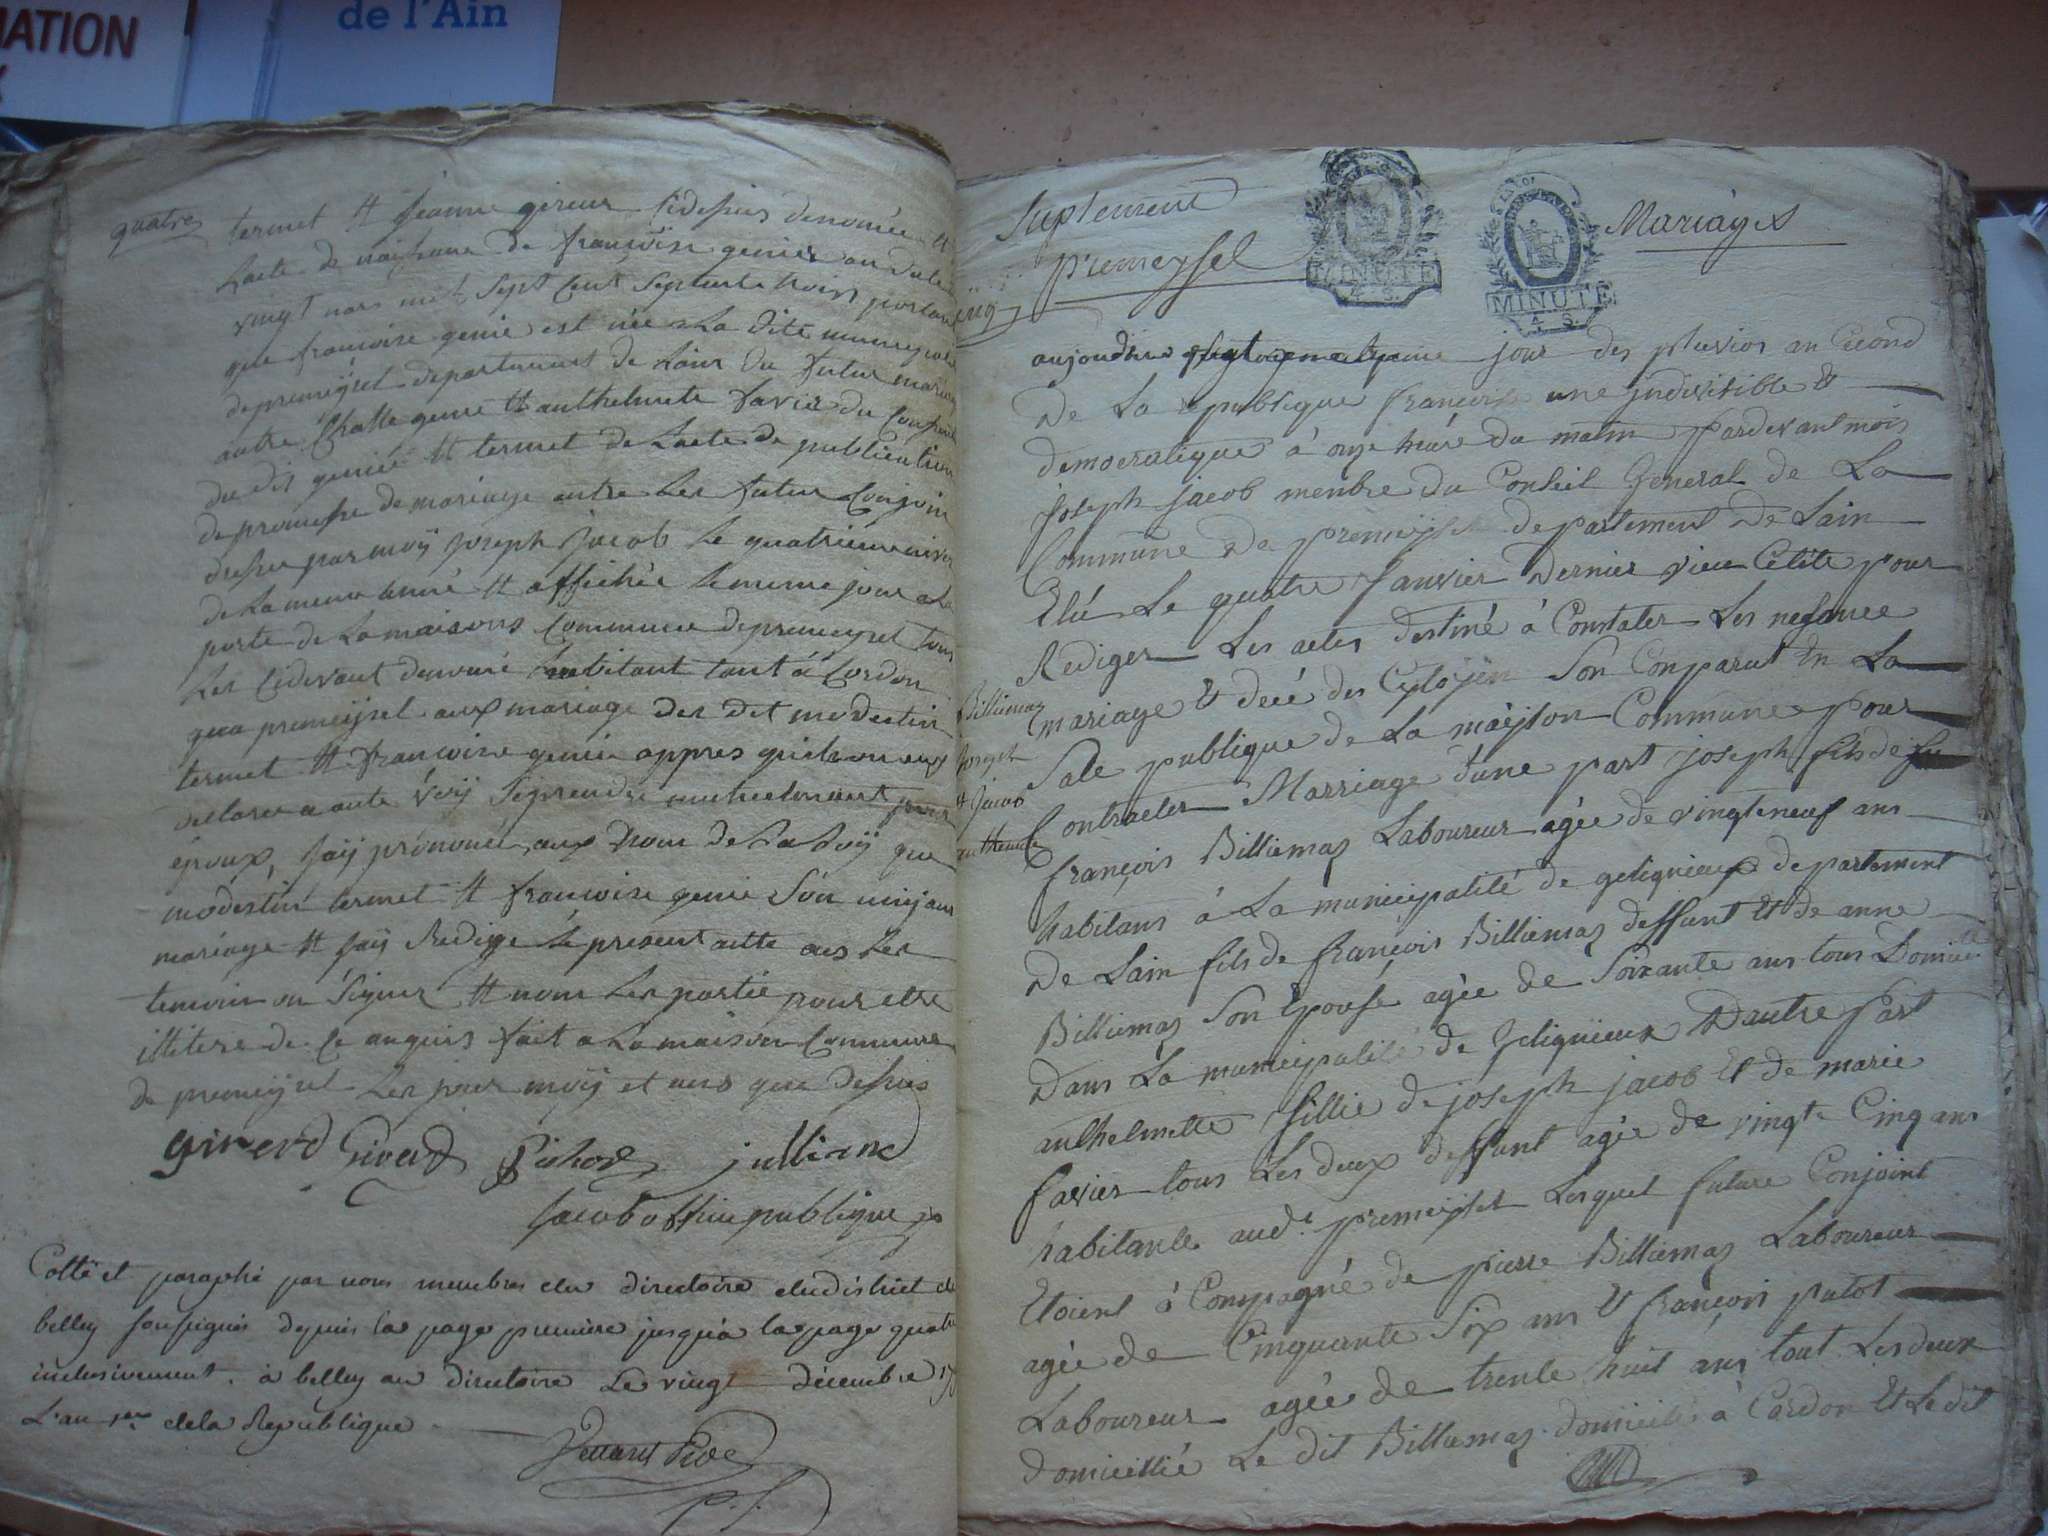 MATION
de l'Ain
quatre
termet et jeanne genoux cidessus denomée et
Lacte de naissance de francoise genie en date
vingt mars mil sept cent septante trois portant
que francoise genie est née a La dite municipalité
de premeysel departement de Lain du futur mariage
autre genie et anthelmete favier du
du dit genie et termet de Lacte de publication
de promesse de mariage entre Les futur Conjoin
dresser par moÿ joseph jacob Le quatrieme
de La meme année et affichée Le meme jour a La
porte de La maisons Commune de premeysel tous
Les cidevant denomé habitant tant á Cordon
qua premeysel aux mariage des dit modestin
termet et francoise genie appres quielson eux
declare a aute voÿ se prendre mutuelement pour
époux, jaÿ prononcé aux nom de La Loÿ que
modestin termet et francoise genie son unis en
mariage et jaÿ Redige Le present acte avec Les
temoin on signer et nom Les partie pour etre
illitere de ce anquis fait a La maison Commune
de premeysel Les jour moÿ et ans que dessus
girerd Girerd Pichod jullianc
jacob officie publique
Cotté et paraphé par nous membres du directoire du district de
belley soussignés depuis la page premiere jusqu'a la page quatre
inclusivement. à belley au directoire Le vingt décembre 17
L'an 1er de la Republique
p. s.
Suplement
premeyssel
MINUTE
4 S.
MINUTE
4 S.
Mariages
cinq
aujourdhui jour des pluvios an Cecond
De La republique francoise une jndivisible Et
democratique à onze heure du matin pardevant mois
joseph jacob menbre du Conseil General de La
Commune De premeysel departement De Lain
Elú Le quatre Janvier Dernier vieu Estite pour
Rediger Les actes destiné à Constater Les nesance
mariage Et decé des Cytoÿen Son Conparut En La
Sale publique de La mayson Commune pour
Contracter Marriage d'une part joseph fils de feu
françois Billiemaz Laboureur agée de vingtneuf ans
habitans à La municipalité de gelignieux departement
De Lain fils de françois Billiemaz deffunt Et de anne
Billiemaz Son Epouse agée de Soixante ans tous Domicilié
Dans La municipalité de Gelignieux Et Dautre Part
anthelmette fillie de joseph jacob Et de marie
favier tous Les deux deffunt agée de vingte Cinq ans
habitante aud.t premeyssel Lesquel future Conjoint
Etoient à Compagné de pierre Billiemaz Laboureur
agée de Cinquante Six ans Et françois putot
Laboureur agée de trente huit ans tout Lesdeux
Domicillié Le dit Billiemaz domicilié à Cordon Et Ledit
Billiemaz
joseph
et jacob
anthelmette